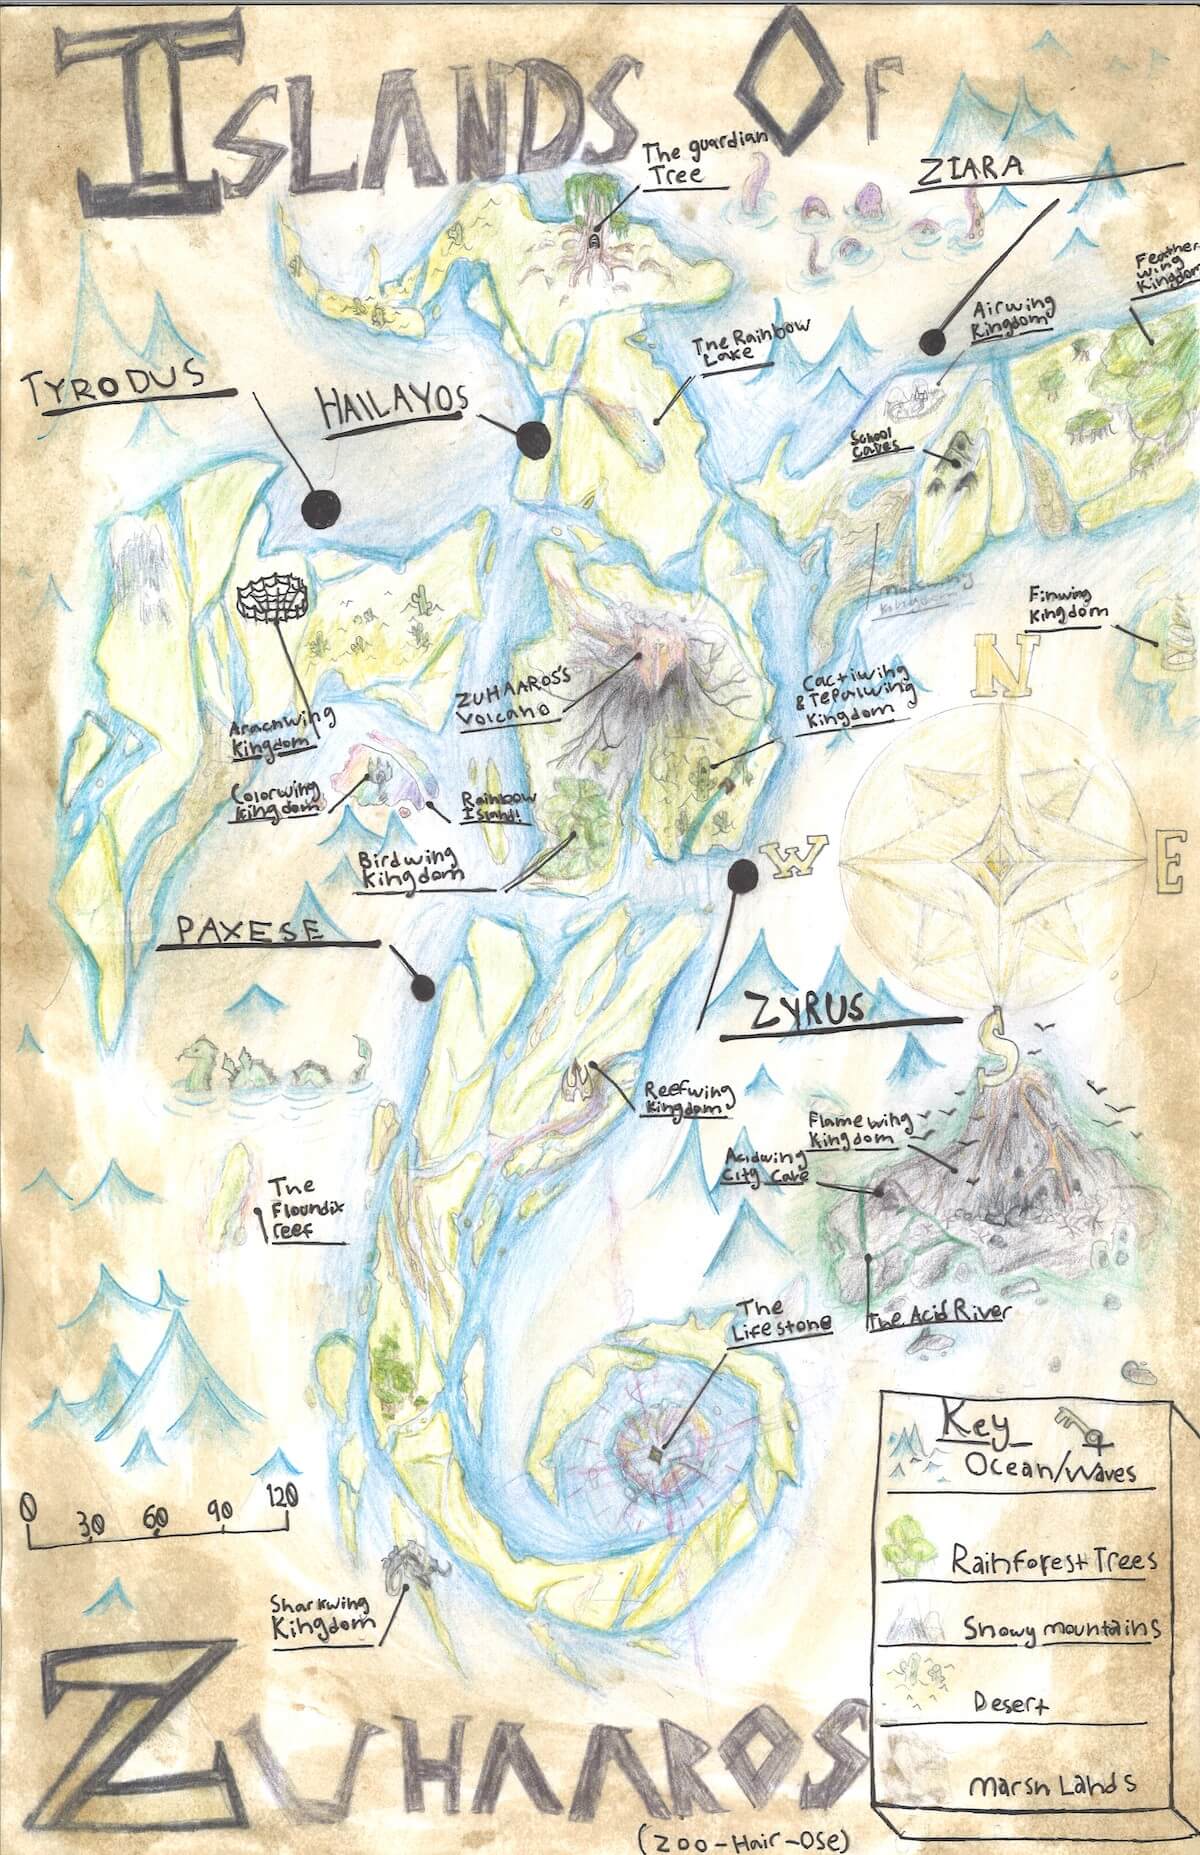 ISLANDS OF
The guardian
Tree
ZIARA
Feather
wing
Kingdom
Airwing
Kingdom
The Rainbow
Lake
TYRODUS
HAILAYOS
School
Caves
Kingdom
Finwing
Kingdom
N
ZUHAAROS's
Volcano
Cactiwing
& Tepalwing
Kingdom
Arachwing
Kingdom
Colorwing
Kingdom
Rainbow
Island!
Birdwing
Kingdom
W
E
PAXESE
ZYRUS
S
Reefwing
Kingdom
Flamewing
Kingdom
Acidwing
City Cave
The
Floundix
reef
The
Lifestone
The Acid River
Key
Ocean/waves
0 30 60 90 120
Rainforest Trees
Sharkwing
Kingdom
Snowy mountains
Desert
Marsh Lands
ZUHAAROS
(ZOO-Hair-Ose)